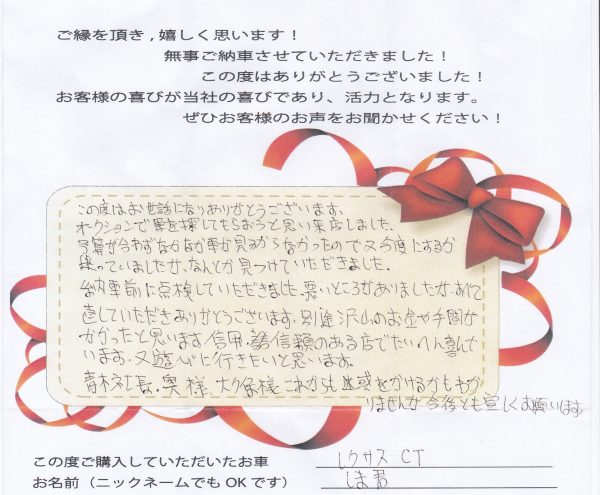 ご縁を頂き,嬉しく思います!
無事ご納車させていただきました!
この度はありがとうございました!
お客様の喜びが当社の喜びであり、活力となります。
ぜひお客様のお声をお聞かせください!
この度はお世話になりありがとうございます。
オークションで車を探してもらおうと思い来店しました。
予算が合わずなかなか車が見つからなかったので又今度にするか
迷っていましたが、なんとか見つけていただきました。
納車前に点検していただきました、悪いところがありましたが、
直していただきありがとうございます。別途沢山のお金や手間が
かかったと思います 信用、信頼のある店でたいへん喜んで
います。又遊びに行きたいと思います。
青木社長、奥様、大久保様 これからも迷惑をかけるかもわか
りませんが 今後とも宜しくお願いします。
この度ご購入していただいたお車 レクサス CT
お名前(ニックネームでもOKです) しま君